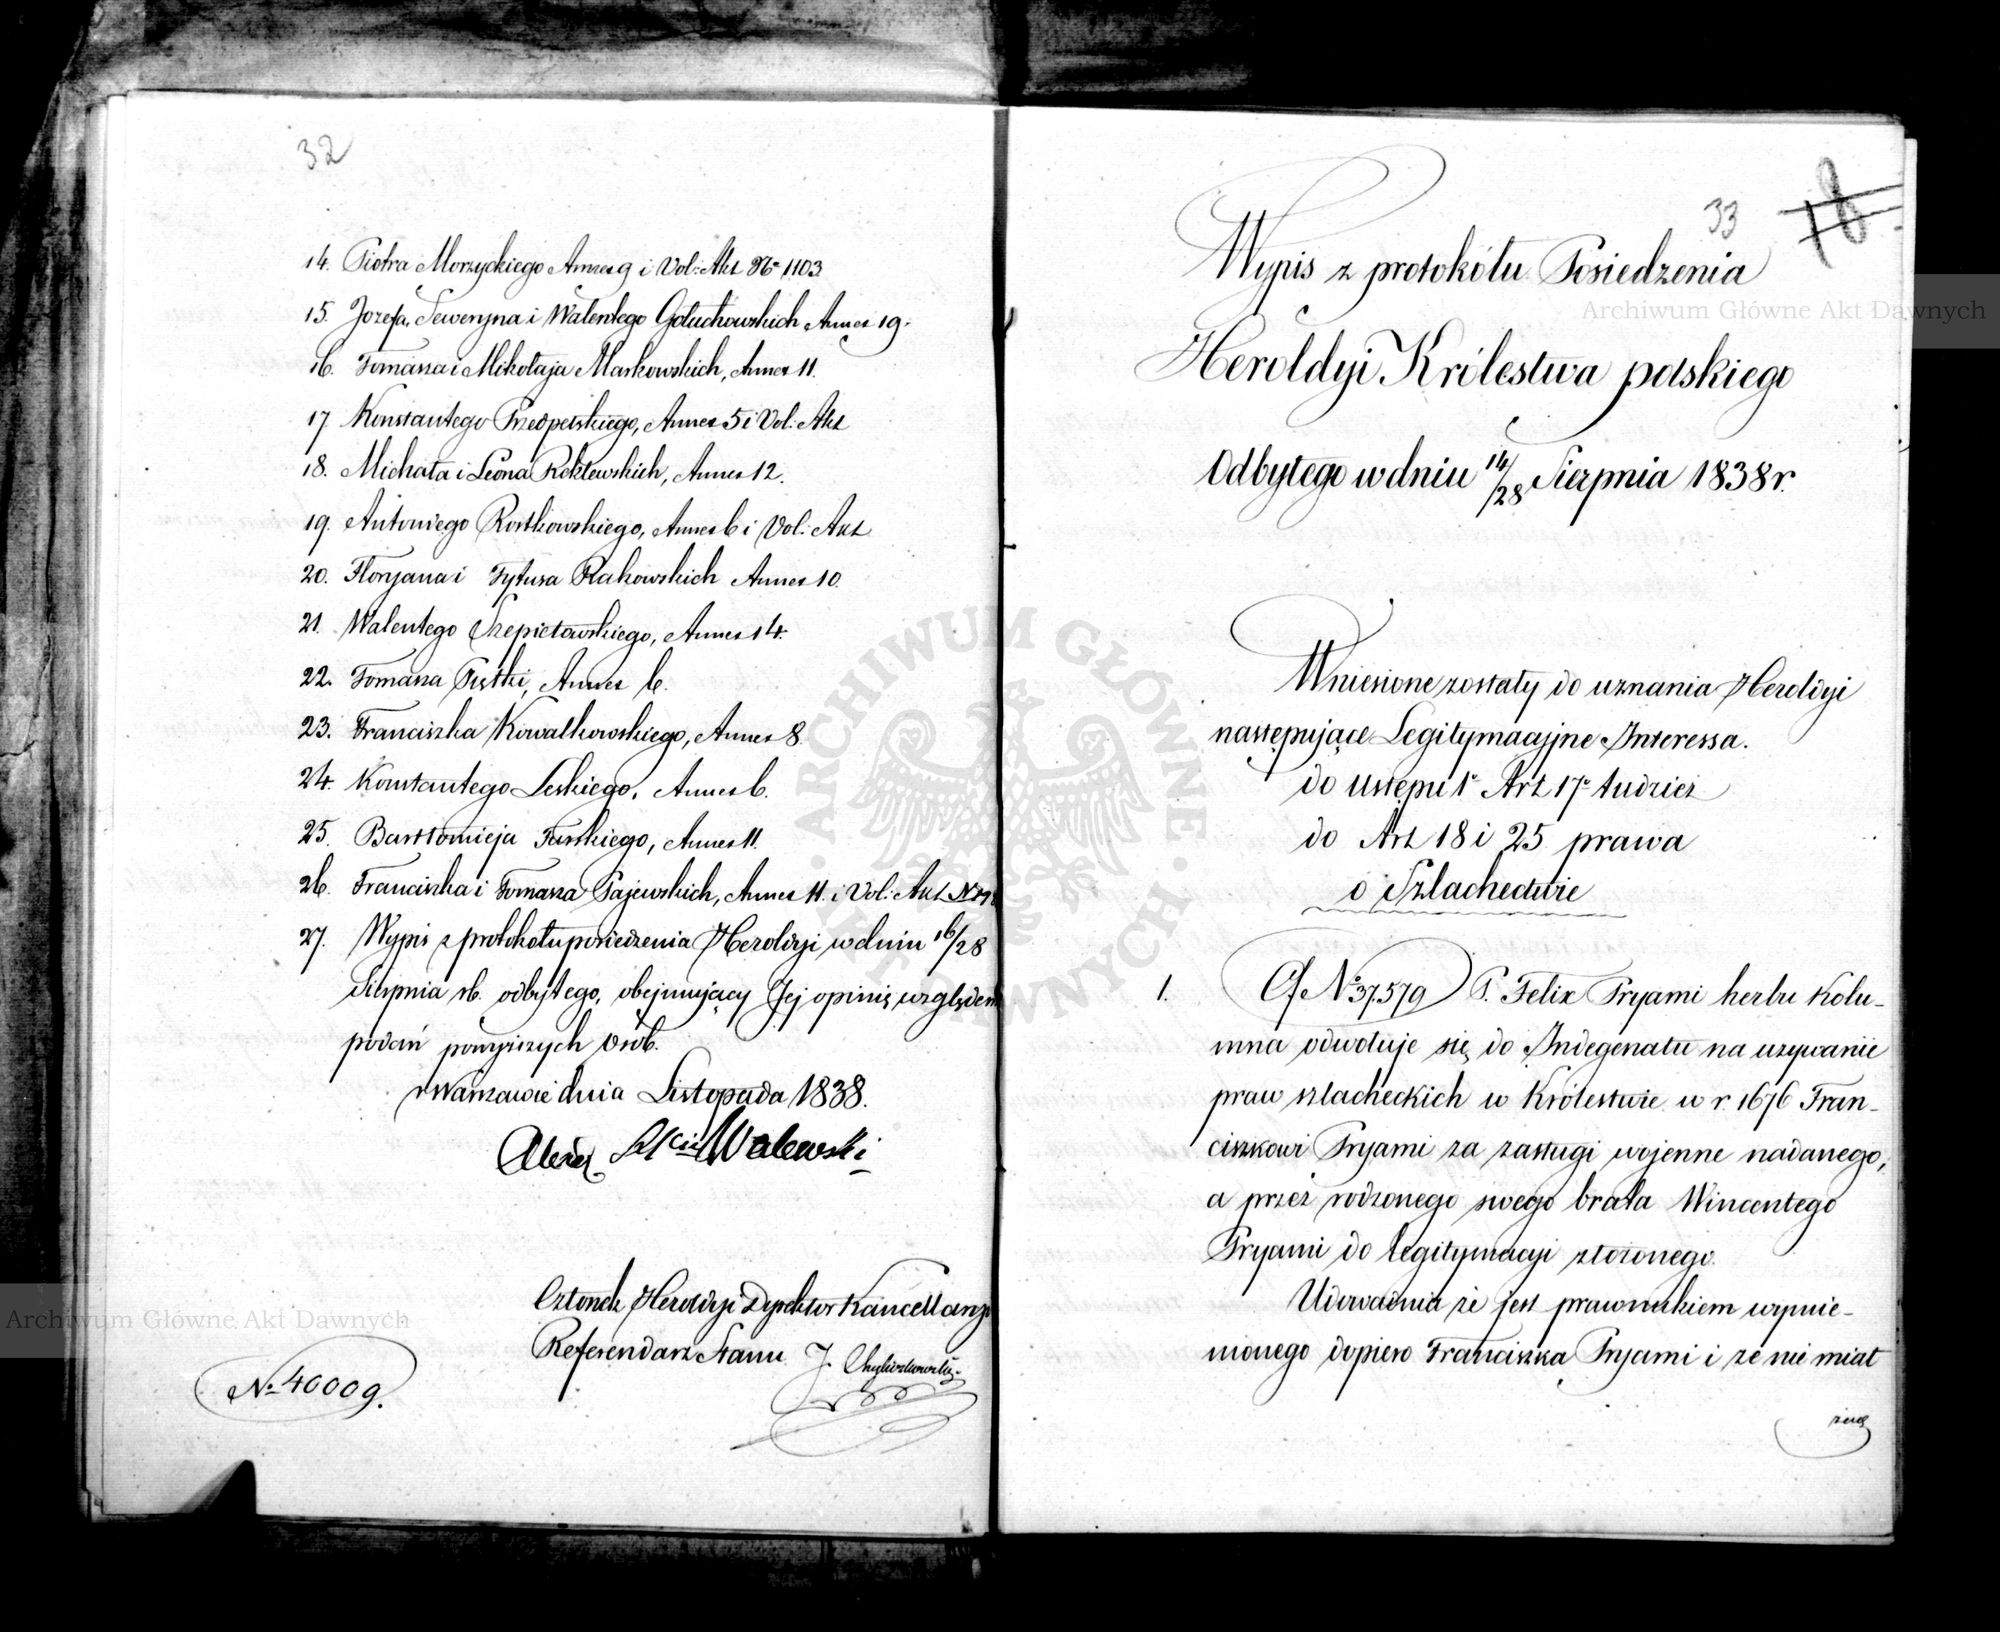 32
14. Piotra Morzyckiego Annex 9 i Vol: Akt No 1103
15. Jozefa, Seweryna i Walentego Gołuchowskich Annex 19.
16. Tomasza i Mikołaja Markowskich, Annex 11.
17. Konstantego Przedpełskiego, Annex 5 i Vol: Akt
18. Michała i Leona Rekłewskich, Annex 12.
19. Antoniego Rostkowskiego, Annex 6 i Vol: Akt
20. Floryana i Tytusa Rakowskich Annex 10.
21. Walentego Szepietowskiego, Annex 14.
22. Tomasza Pistki, Annex 6.
23. Franciszka Kowalkowskiego, Annex 8.
24. Konstantego Leskiego, Annex 6.
25. Bartłomieja Turskiego, Annex 11.
26. Franciszka i Tomasza Gajewskich, Annex 11. i Vol: Akt
27. Wypis z protokołu posiedzenia Heroldyi w dniu 16/28
Sierpnia rb. odbytego, obejmujący Jej opinię względem
podań powyższych osób.
w Warszawie dnia Listopada 1838.
Walewski
Członek Heroldyi Dyrektor Kancellaryi
Referendarz Stanu J.
No 40009.
33
18
Wypis z protokółu Posiedzenia
Heroldyi Królestwa polskiego
Odbytego w dniu 14/28 Sierpnia 1838 r.
Wniesione zostały do uznania Heroldyi
następujące Legitymacyjne Interessa.
do ustępu 1o Art 17o tudzież
do Art 18 i 25 prawa
o Szlachectwie
1. Cf No 37.579 P. Felix Pryami herbu Kolu-
mna odwołuje się do Indegenatu na używanie
praw szlacheckich w Królestwie w r. 1676 Fran-
ciszkowi Pryami za zasługi wojenne nadanego,
a przez rodzonego swego brata Wincentego
Pryami do legitymacyi złożonego.
Udowadnia że jest prawnukiem wymie-
nionego dopiero Franciszka Pryami i że nie miał
żad
Archiwum Główne Akt Dawnych
Archiwum Główne Akt Dawnych
ARCHIWUM GŁÓWNE AKT DAWNYCH